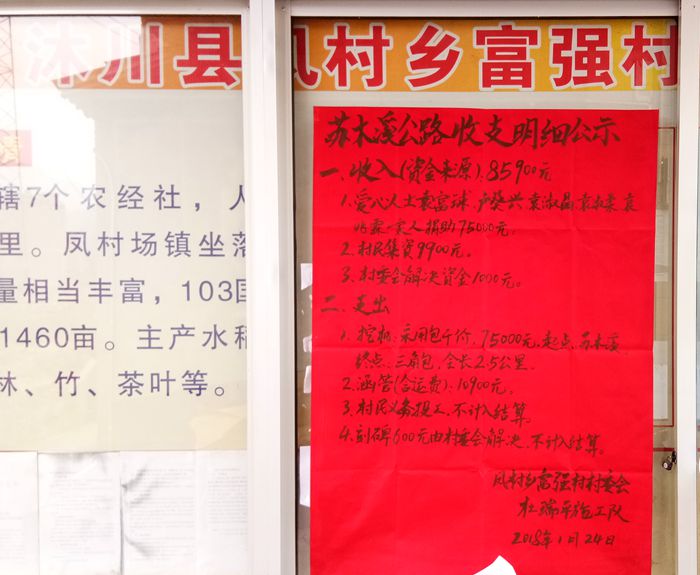 沐川县凤村乡富强村
辖7个农经社，人
里。凤村场镇坐落
量相当丰富，103国
1460亩。主产水稻
林、竹、茶叶等。
苏木溪公路收支明细公示
一、收入(资金来源):85900元
1.爱心人士袁富球、卢癸兴、袁淑昌、袁淑柔、袁
一家人捐助75000元。
2.村民集资9900元。
3.村委会解决资金1000元。
二、支出
1.挖机:采用包干价,75000元,起点:苏木溪
终点:三角包,全长2.5公里。
2.涵管(含运费):10900元。
3.村民义务投工,不计入结算。
4.刻碑600元由村委会解决,不计入结算。
凤村乡富强村村委会
杜瑞平施工队
2018年1月24日